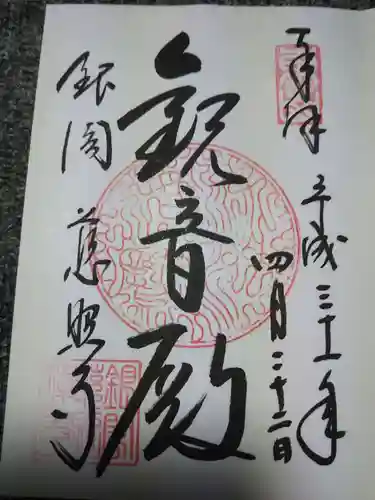 奉拝
平成三十一年
四月二十二日
観音殿
銀閣
慈照寺